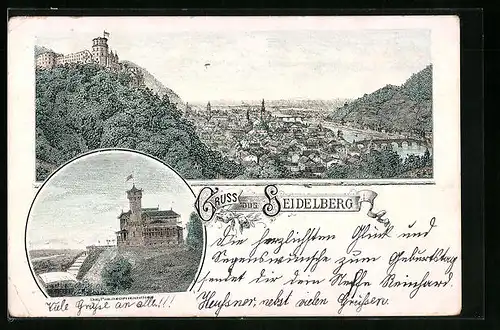 GRUSS AUS HEIDELBERG
Die herzlichsten Glück und
Segenswünsche zum Geburtstag
sendet dir dein Neffe Reinhard
Heussner, nebst vielen Grüßen.
Viele Grüße an alle!!!